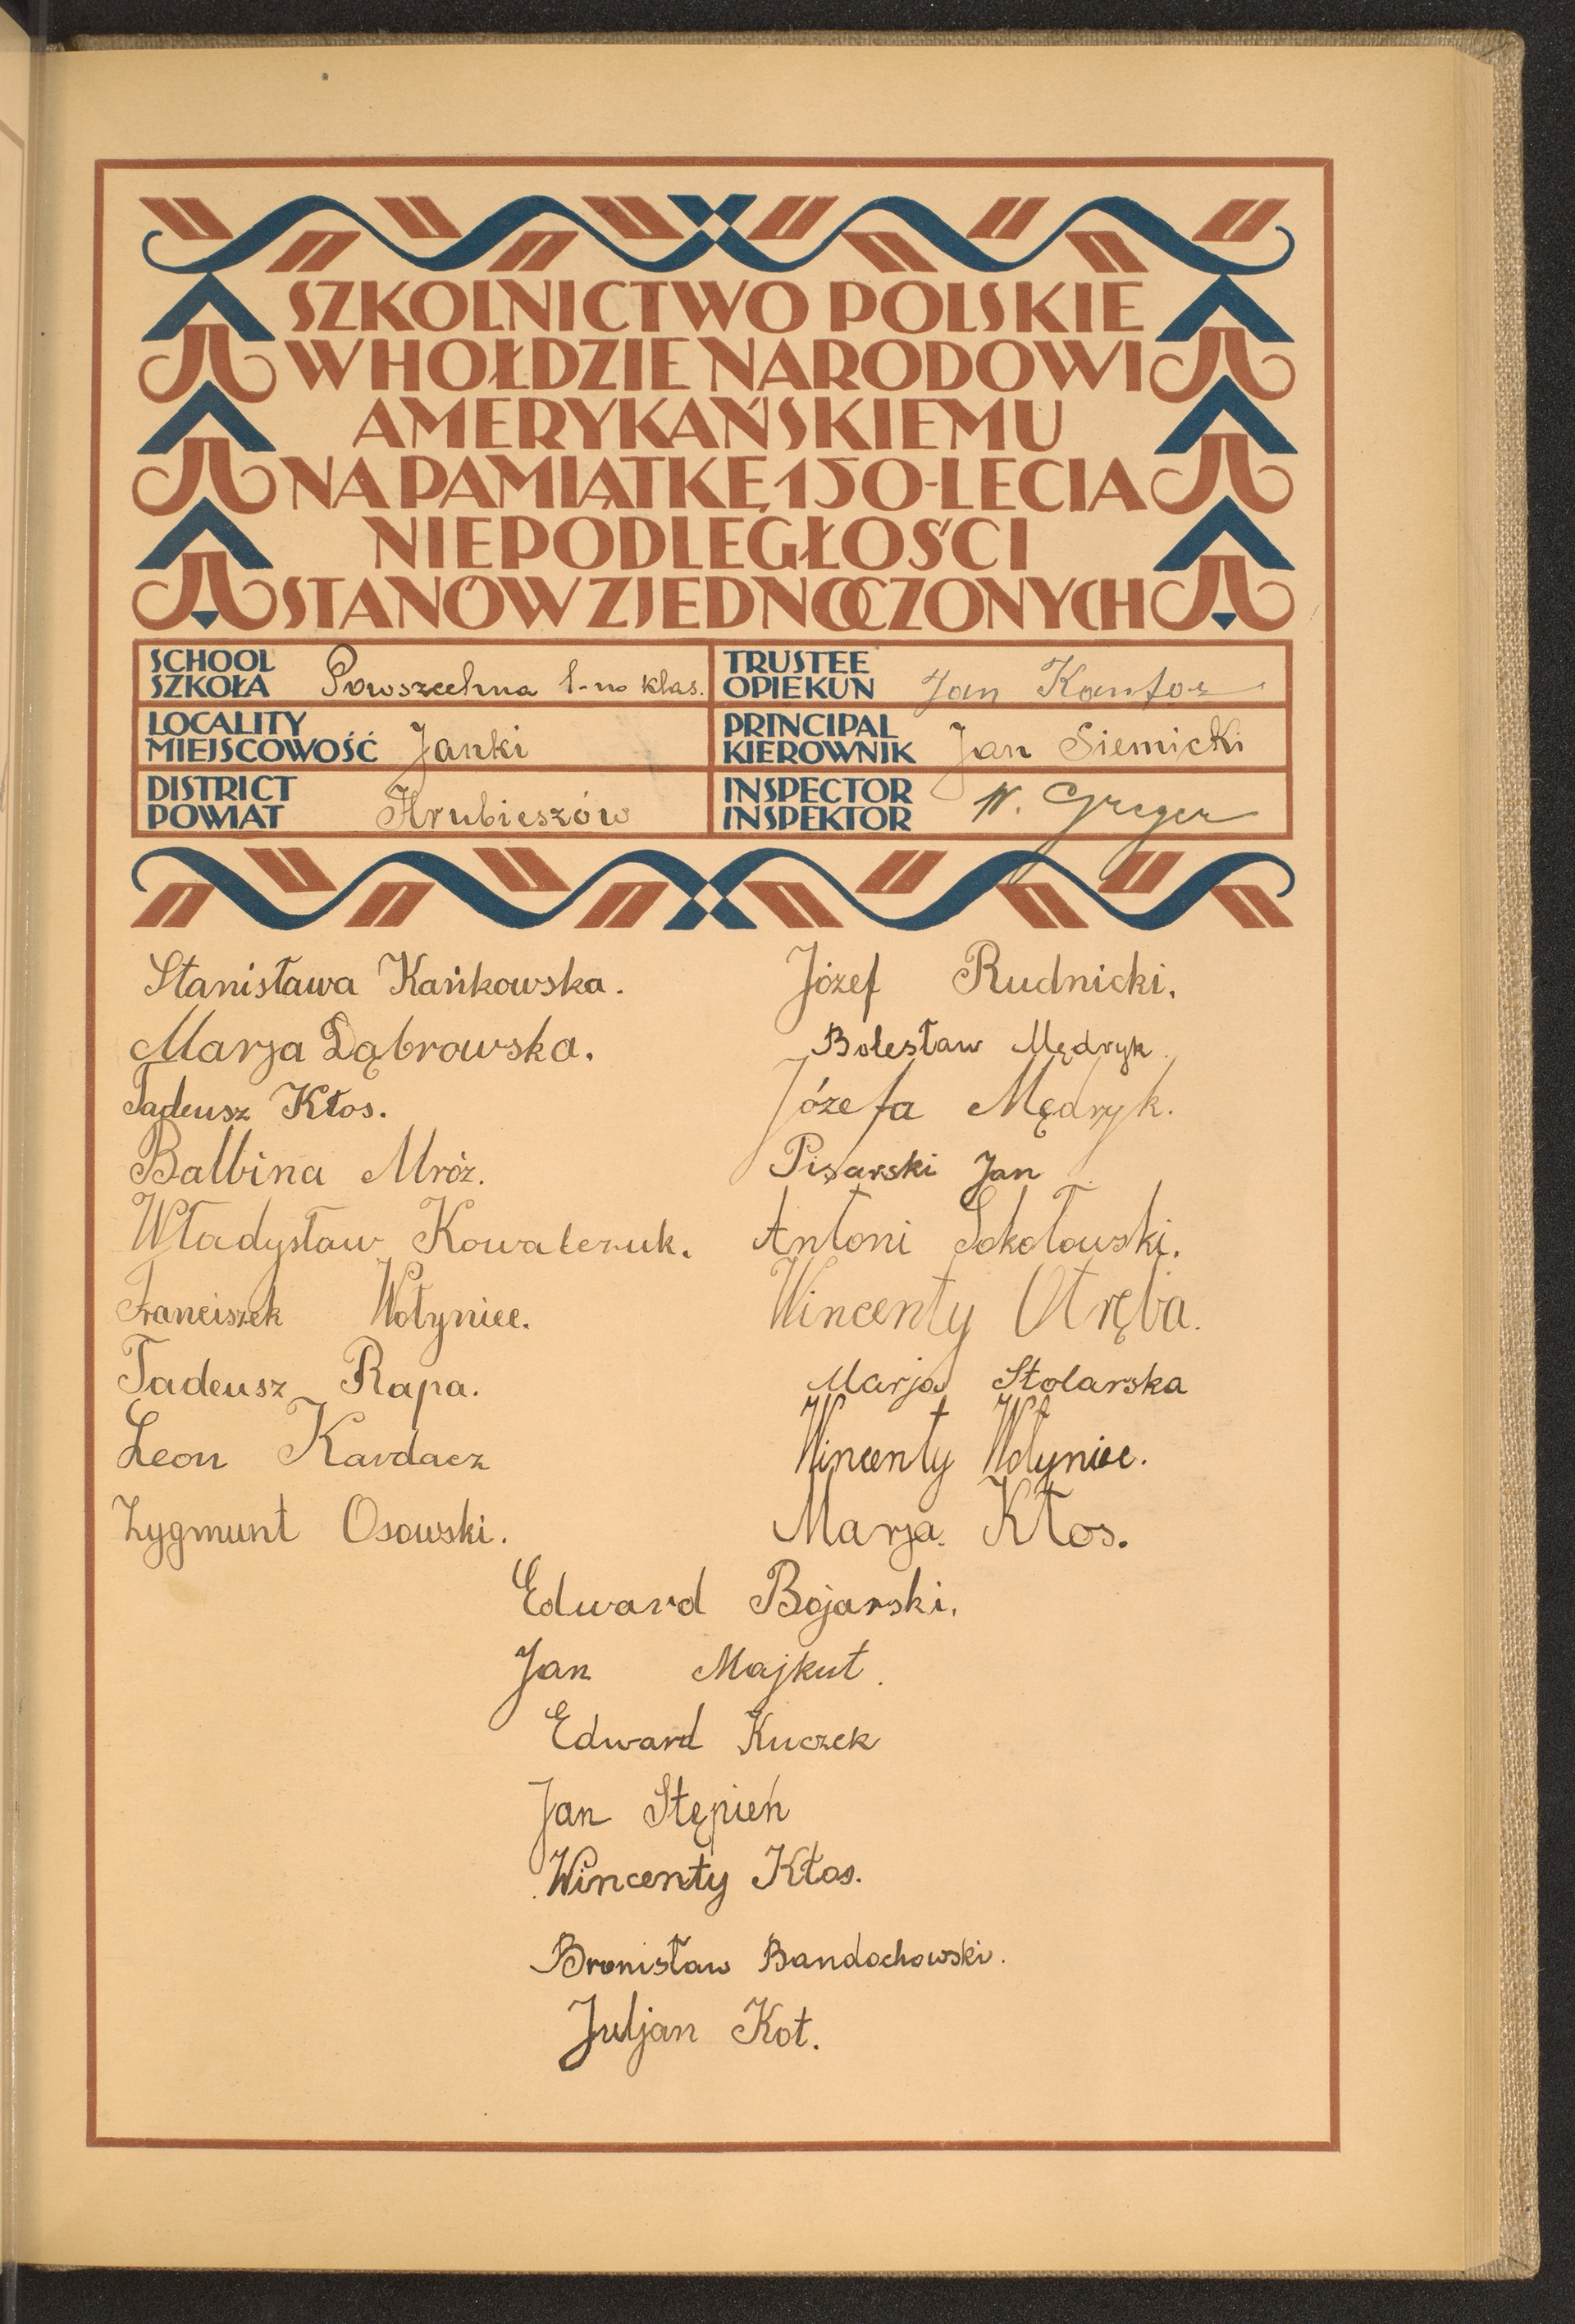 SZKOLNICTWO POLSKIE
W HOŁDZIE NARODOWI
AMERYKAŃSKIEMU
NA PAMIĄTKĘ 150-LECIA
NIEPODLEGŁOŚCI
STANÓW ZJEDNOCZONYCH
SCHOOL
SZKOŁA Powszechna 1-no klas.
TRUSTEE
OPIEKUN Jan Kantor
LOCALITY
MIEJSCOWOŚĆ Janki
PRINCIPAL
KIEROWNIK Jan Siemicki
DISTRICT
POWIAT Hrubieszów
INSPECTOR
INSPEKTOR W. Greger
Stanisława Kańkowska.
Marja Dąbrowska.
Tadeusz Kłos.
Balbina Mróz.
Władysław Kowalczuk.
Franciszek Wołyniec.
Tadeusz Rapa.
Leon Kardacz
Zygmunt Osowski.
Józef Rudnicki.
Bolesław Mędryk.
Józefa Mędryk.
Pisarski Jan
Antoni Sokołowski.
Wincenty Otręba.
Marja Stolarska
Wincenty Wołyniec.
Marja Kłos.
Edward Bojarski.
Jan Majkut.
Edward Kuczek
Jan Stępień
Wincenty Kłos.
Bronisław Bandochowski.
Juljan Kot.